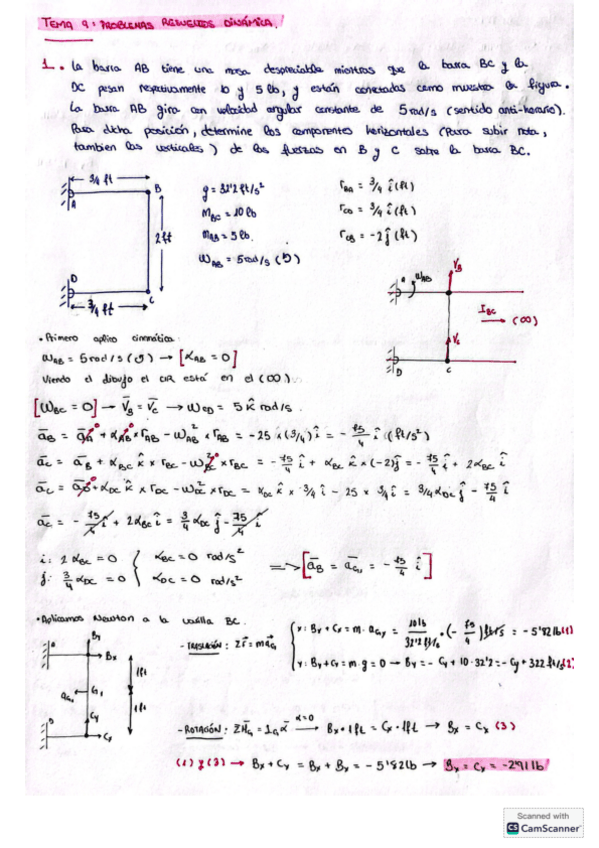 TEMA 9: PROBLEMAS RESUELTOS DINÁMICA.
1. La barra AB tiene una masa despreciable mientras que la barra BC y la
DC pesan respectivamente 10 y 5 lb, y están conectadas como muestra la figura.
La barra AB gira con velocidad angular constante de 5 rad/s (sentido anti-horario).
Para dicha posición, determine las componentes horizontales (Para subir nota,
tambien las verticales) de las fuerzas en B y C sobre la barra BC.
3/4 ft
A
B
2 ft
D
C
3/4 ft
g = 32'2 ft/s²
m_BC = 10 lb
m_AB = 5 lb.
ω_AB = 5 rad/s (↺)
r_BA = 3/4 î (ft)
r_CD = 3/4 î (ft)
r_CB = -2 ĵ (ft)
V_B
ω_AB
I_BC
(∞)
V_C
D
C
• Primero aplico cinmática:
ω_AB = 5 rad/s (↺) → [α_AB = 0]
Viendo el dibujo el CIR está en el (∞)
[ω_BC = 0] → V̄_B = V̄_C → ω_CD = 5 k̂ rad/s.
ā_B = ā_A + α_AB × r_AB - ω_AB² × r_AB = -25 × (3/4) î = - 75/4 î (ft/s²)
ā_C = ā_B + α_BC k̂ × r_BC - ω_BC² × r_BC = - 75/4 î + α_BC k̂ × (-2) ĵ = - 75/4 î + 2α_BC î
ā_C = ā_D + α_DC k̂ × r_DC - ω_DC² × r_DC = α_DC k̂ × 3/4 î - 25 × 3/4 î = 3/4 α_DC ĵ - 75/4 î
ā_C = - 75/4 î + 2α_BC î = 3/4 α_DC ĵ - 75/4 î
i: 2 α_BC = 0
j: 3/4 α_DC = 0
α_BC = 0 rad/s²
α_DC = 0 rad/s²
==> [ā_B = ā_G1 = - 75/4 î]
• Aplicamos Newton a la varilla BC.
B_Y
B_X
1ft
a_G1
G_1
1ft
D
C_Y
C_X
- TRASLACIÓN: ΣF̄ = m ā_G
x: B_X + C_X = m · a_GX = 10 lb / 32'2 ft/s² · (- 75/4) ft/s = -5'82 lb (1)
y: B_Y + C_Y = m · g = 0 → B_Y = - C_Y + 10·32'2 = -C_Y + 322 ft/s (2)
- ROTACIÓN: ΣM_G = I_G ᾱ α=0 → B_X · 1ft = C_X · 1ft → B_X = C_X (3)
(1) y (3) → B_X + C_X = B_X + B_X = -5'82 lb → B_X = C_X = -2'91 lb
Scanned with
CS CamScanner